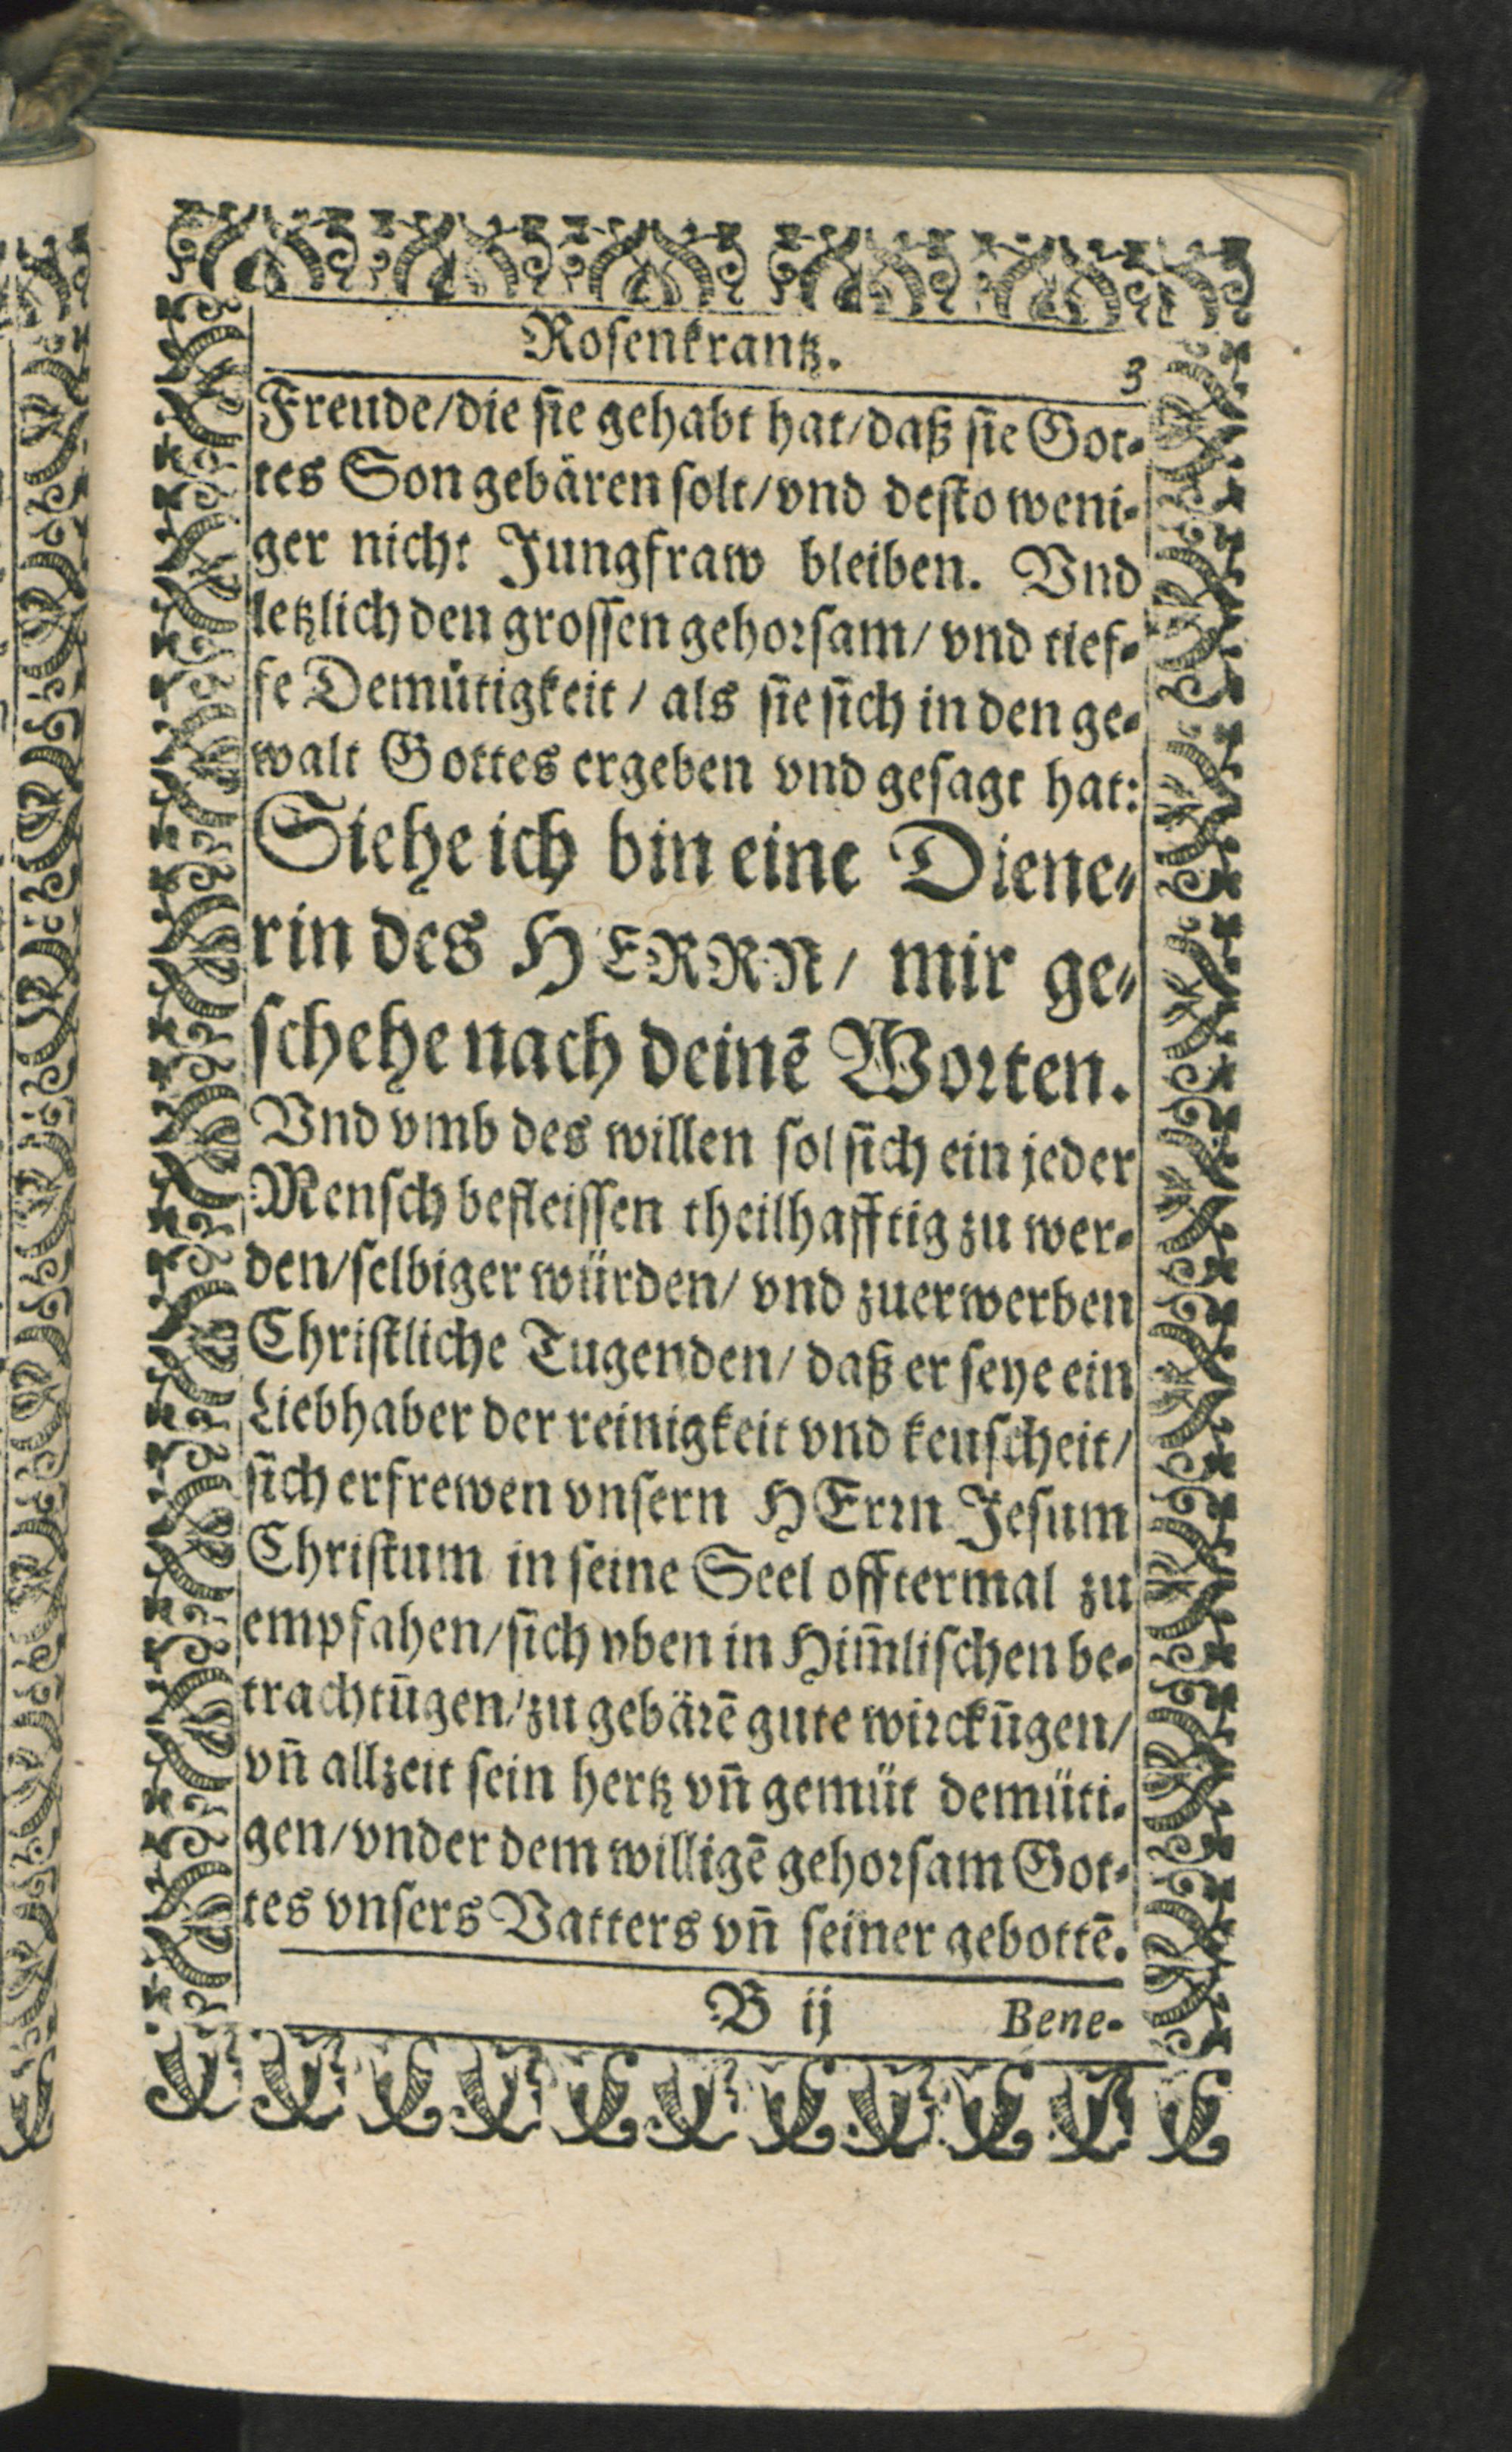 Rosenkrantz. 3
Freude/die sie gehabt hat/daß sie Got-
tes Son gebären solt/vnd desto weni-
ger nicht Jungfraw bleiben. Vnd
letzlich den grossen gehorsam/ vnd tief-
fe Demütigkeit/ als sie sich in den ge-
walt Gottes ergeben vnd gesagt hat:
Siehe ich bin eine Diene-
rin des HERRN/ mir ge-
schehe nach deinē Worten.
Vnd vmb des willen sol sich ein jeder
Mensch befleissen theilhafftig zu wer-
den/selbiger würden/ vnd zuerwerben
Christliche Tugenden/ daß er seye ein
Liebhaber der reinigkeit vnd keuscheit/
sich erfrewen vnsern HErrn Jesum
Christum in seine Seel offtermal zu
empfahen/sich vben in Him̄lischen be-
trachtūgen/zu gebärē gute wirckūgen/
vn̄ allzeit sein hertz vn̄ gemüt demüti-
gen/vnder dem willigē gehorsam Got-
tes vnsers Vatters vn̄ seiner gebottē.
B ij Bene-